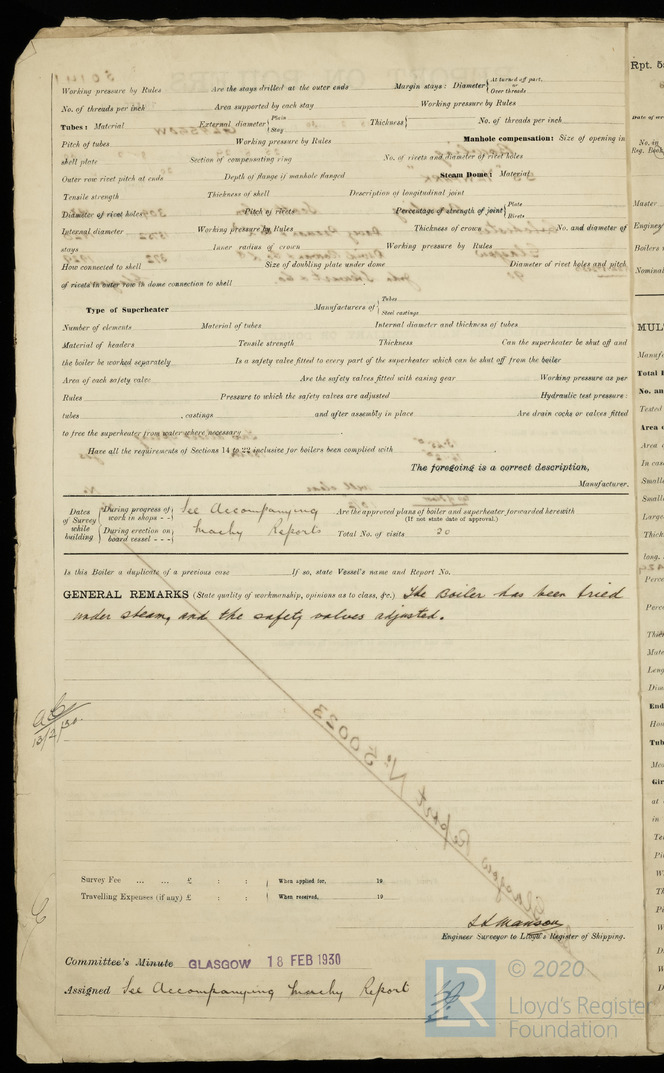 Working pressure by Rules Are the stays drilled at the outer ends Margin stays: Diameter { At turned off part, or Over threads
No. of threads per inch Area supported by each stay Working pressure by Rules
Tubes: Material External diameter { Plain Stay Thickness { No. of threads per inch
Pitch of tubes Working pressure by Rules Manhole compensation: Size of opening in
shell plate Section of compensating ring No. of rivets and diameter of rivet holes
Outer row rivet pitch at ends Depth of flange if manhole flanged Steam Dome: Material
Tensile strength Thickness of shell Description of longitudinal joint
Diameter of rivet holes Pitch of rivets Percentage of strength of joint { Plate Rivets
Internal diameter Working pressure by Rules Thickness of crown No. and diameter of
stays Inner radius of crown Working pressure by Rules
How connected to shell Size of doubling plate under dome Diameter of rivet holes and pitch
of rivets in outer row in dome connection to shell
Type of Superheater Manufacturers of { Tubes Steel castings
Number of elements Material of tubes Internal diameter and thickness of tubes
Material of headers Tensile strength Thickness Can the superheater be shut off and
the boiler be worked separately Is a safety valve fitted to every part of the superheater which can be shut off from the boiler
Area of each safety valve Are the safety valves fitted with easing gear Working pressure as per
Rules Pressure to which the safety valves are adjusted Hydraulic test pressure:
tubes , castings and after assembly in place Are drain cocks or valves fitted
to free the superheater from water where necessary
Have all the requirements of Sections 14 to 22 inclusive for boilers been complied with
The foregoing is a correct description,
Manufacturer.
Dates of Survey while building { During progress of work in shops - - } See Accompanying Are the approved plans of boiler and superheater forwarded herewith
(If not state date of approval.)
{ During erection on board vessel - - - } Machy Reports Total No. of visits 20
Is this Boiler a duplicate of a previous case If so, state Vessel's name and Report No.
GENERAL REMARKS (State quality of workmanship, opinions as to class, &c.) The Boiler has been tried
under steam, and the safety valves adjusted.
13/2/30.
Glasgow Report No 50023
Survey Fee ... ... £ : : { When applied for, 19
Travelling Expenses (if any) £ : : { When received, 19
Engineer Surveyor to Lloyd's Register of Shipping.
Committee's Minute GLASGOW 18 FEB 1930
Assigned See Accompanying Machy Report
© 2020
Lloyd's Register
Foundation
LR
Rpt. 5
Date of wr
No. in
Reg. Book
Master
Engines
Boilers
Nominal
MUL
Manufa
Total
No. an
Tested
Area o
Area
In case
Smalle
Smalle
Large
Thick
long.
Perce
Perce
Thick
Mate
Leng
Dia
End
How
Tub
Me
Gir
at
in
Te
Pi
W
Th